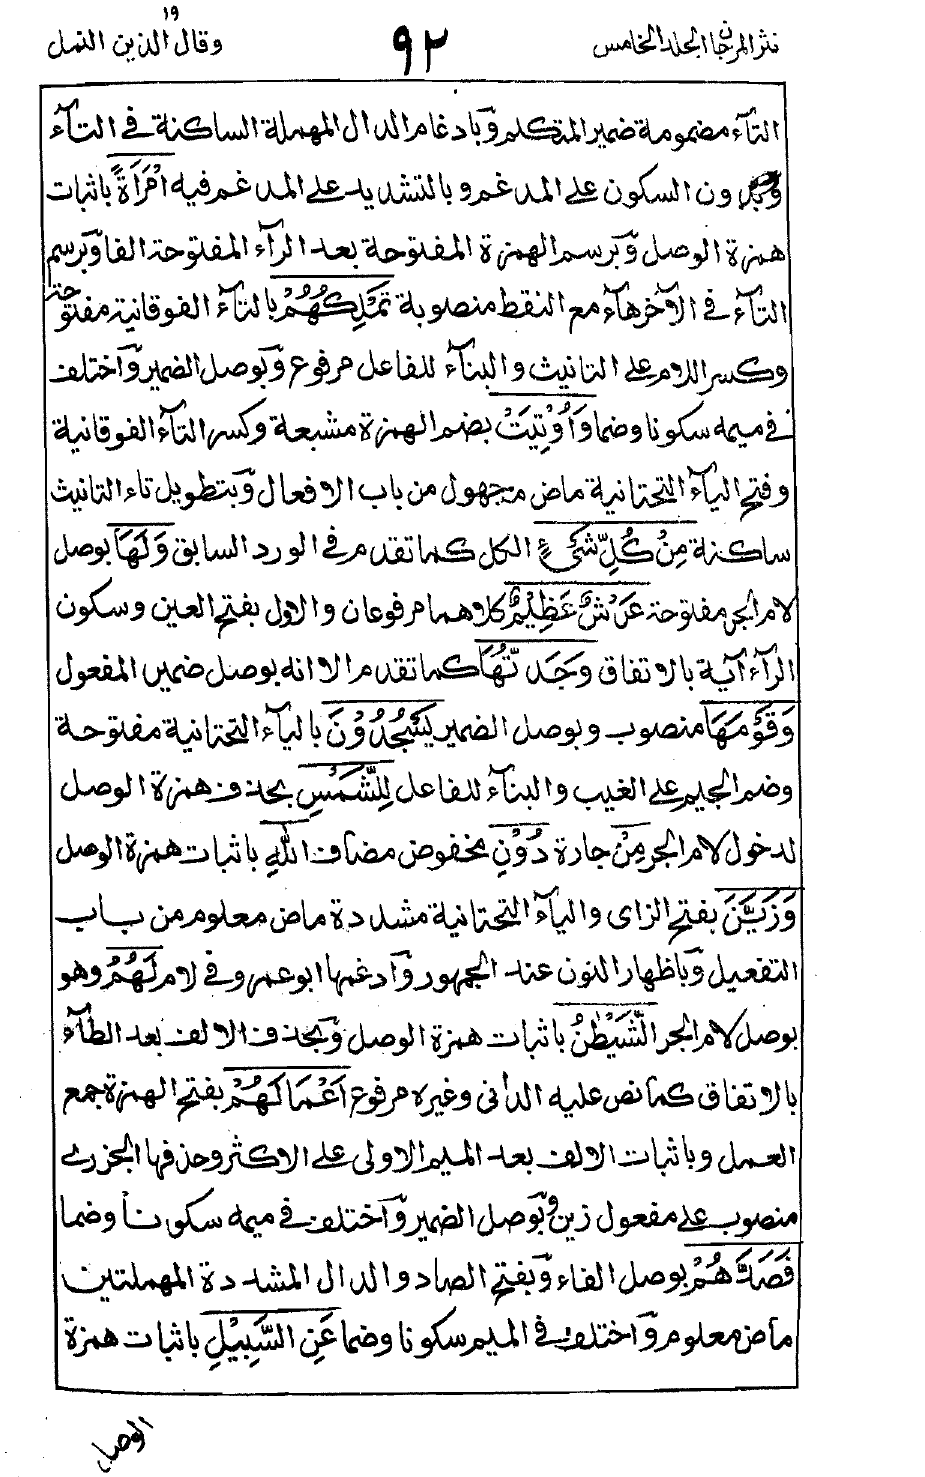 نثر المرجان الجلد الخامس
٩٢
وقال الذين ١٩ النمل
التآء مضمومة ضمير المتكلم وبادغام الدال المهملة الساكنة في التآء
وبدون السكون على المدغم وبالتشديد على المدغم فيه امْرَاَةً باثبات
همزة الوصل وبرسم الهمزة المفتوحة بعد الرآء المفتوحة الفا وبرسم
التآء في الآخر هآء مع النقط منصوبة تَمْلِكُهُمْ بالتآء الفوقانية مفتوحة
وكسر اللام على التانيث والبنآء للفاعل مرفوع وبوصل الضمير واختلف
في ميمه سكونا وضما وَاُوْتِيَتْ بضم الهمزة مشبعة وكسر التآء الفوقانية
وفتح اليآء التحتانية ماض مجهول من باب الافعال وبتطويل تاء التانيث
ساكنة مِنْ كُلِّ شَيْءٍ الكل كما تقدم في الورد السابق وَلَهَا بوصل
لام الجر مفتوحة عَرْشٌ عَظِيْمٌ كلاهما مرفوعان والاول بفتح العين وسكون
الرآء آية بالاتفاق وَجَدْتُّهَا كما تقدم الا انه بوصل ضمير المفعول
وَقَوْمَهَا منصوب وبوصل الضمير يَسْجُدُوْنَ باليآء التحتانية مفتوحة
وضم الجيم على الغيب والبنآء للفاعل لِلشَّمْسِ بحذف همزة الوصل
لدخول لام الجر مِنْ جارة دُوْنِ مخفوض مضاف اللّٰهِ باثبات همزة الوصل
وَزَيَّنَ بفتح الزاى واليآء التحتانية مشددة ماض معلوم من باب
التفعيل وباظهار النون عند الجمهور وادغمها ابو عمرو في لام لَهُمُ وهو
بوصل لام الجر الشَّيْطٰنُ باثبات همزة الوصل وبحذف الالف بعد الطآء
بالاتفاق كما نص عليه الداني وغيره مرفوع اَعْمَالَهُمْ بفتح الهمزة جمع
العمل وباثبات الالف بعد الميم الاولى على الاكثر وحذفها الجزري
منصوب على مفعول زين وبوصل الضمير واختلف في ميمه سكونا وضما
فَصَدَّهُمْ بوصل الفاء وبفتح الصاد والدال المشددة المهملتين
ماض معلوم واختلف في الميم سكونا وضما عَنِ السَّبِيْلِ باثبات همزة
الوصل